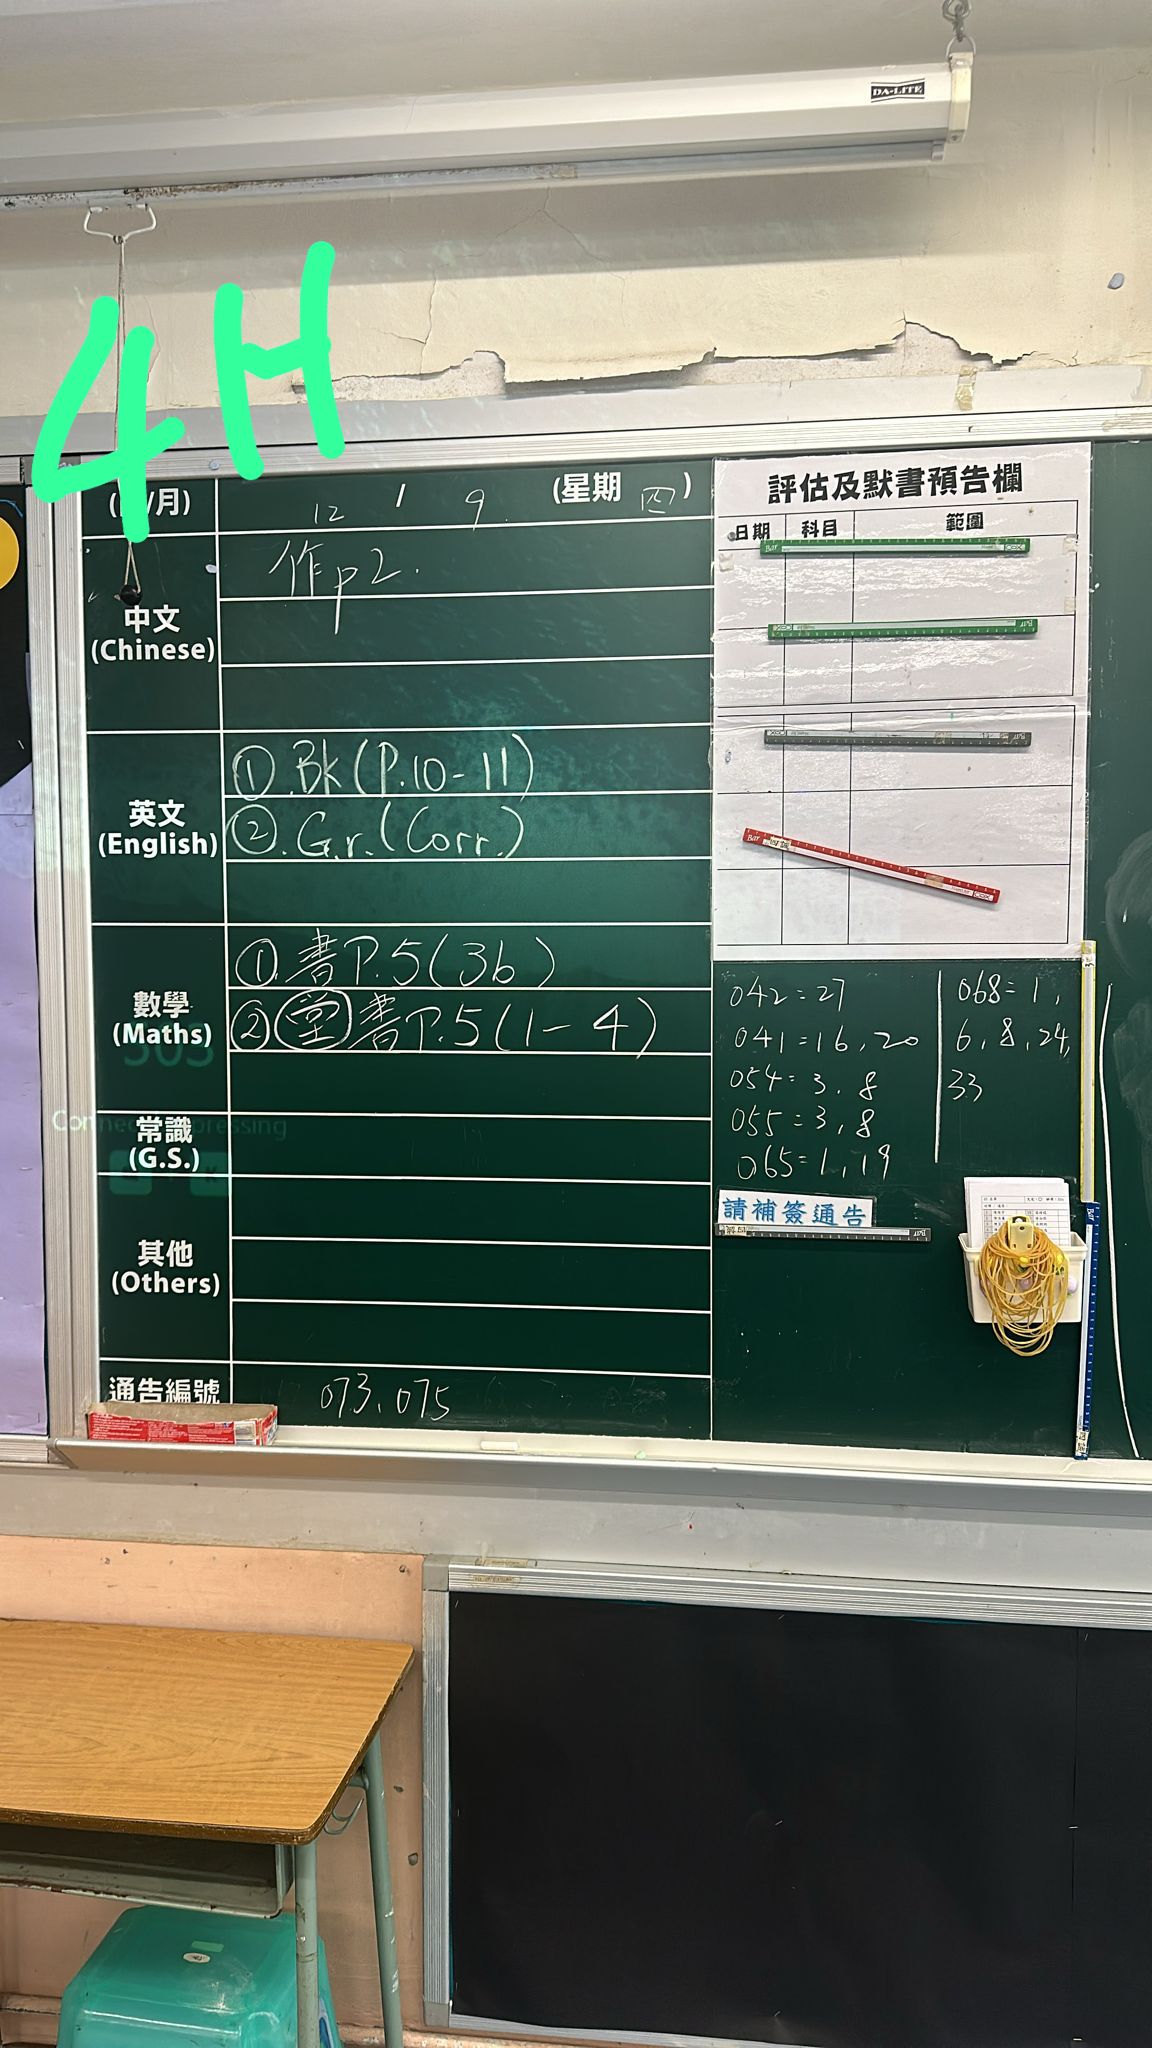 DA-LITE
4H
/月)
12 / 9 (星期 四)
中文
(Chinese)
作p2.
英文
(English)
①.Bk(P.10-11)
②.Gr.(Corr.)
數學
(Maths)
①.書P.5(3b)
②堂書P.5(1-4)
常識
(G.S.)
其他
(Others)
通告編號
073、075
評估及默書預告欄
日期 科目 範圍
042=27
041=16,20
054=3,8
055=3,8
065=1,19
068=1,
6,8,24,
33
請補簽通告